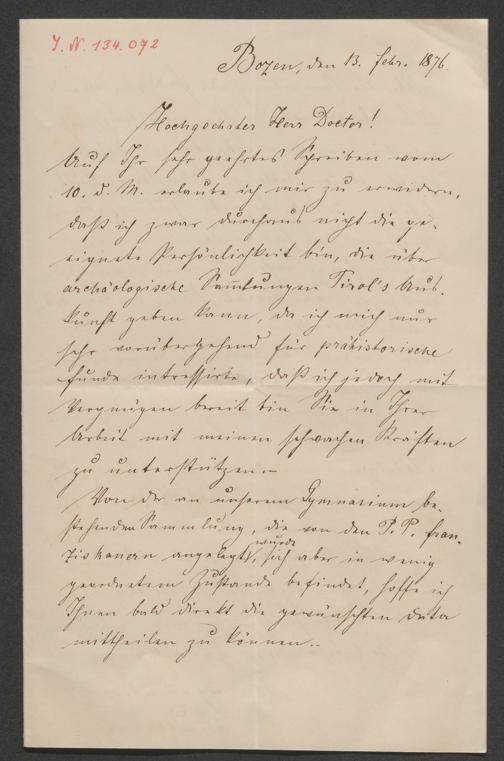 J. N. 134.072
Bozen, den 13. Febr. 1876.
Hochgeehrter Herr Doctor!
Auf Ihr sehr geehrtes Schreiben vom
10. d. M. erlaube ich mir zu erwidern,
daß ich zwar durchaus nicht die ge-
eignete Persönlichkeit bin, die über
archäologische Sam̅lungen Tirol's Aus-
kunft geben kann, da ich mich nur
sehr vorübergehend für prähistorische
Funde intressirte, daß ich jedoch mit
Vergnügen bereit bin Sie in Ihrer
Arbeit mit meinen schwachen Kräften
zu unterstützen.–
Von der an unserem Gymnasium be-
stehenden Sammlung, die von den P. P. Fran-
ziskanern angelegt wurde, sich aber in wenig
geordnetem Zustande befindet, hoffe ich
Ihnen bald direkt die gewünschten Data
mittheilen zu können..